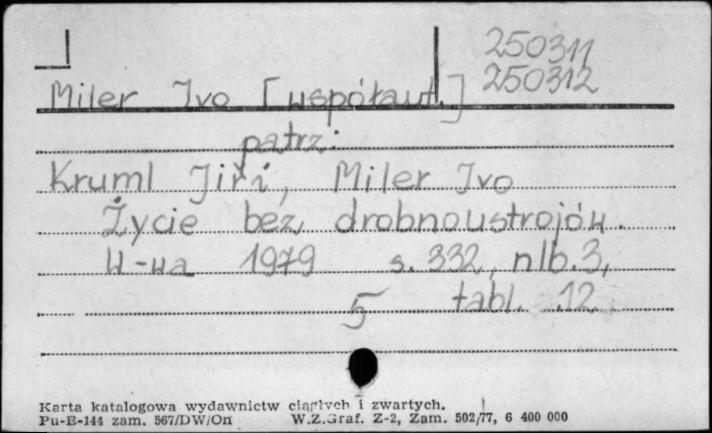 250311
250312
Miler Ivo [współaut.]
patrz:
Kruml Jiři, Miler Ivo
Życie bez drobnoustrojów.
W-wa 1979 s. 332, nlb. 3,
tabl. 12
5
Karta katalogowa wydawnictw ciągłych i zwartych.
Pu-B-144 zam. 567/DW/On W.Z.Graf. Z-2, Zam. 502/77, 6 400 000